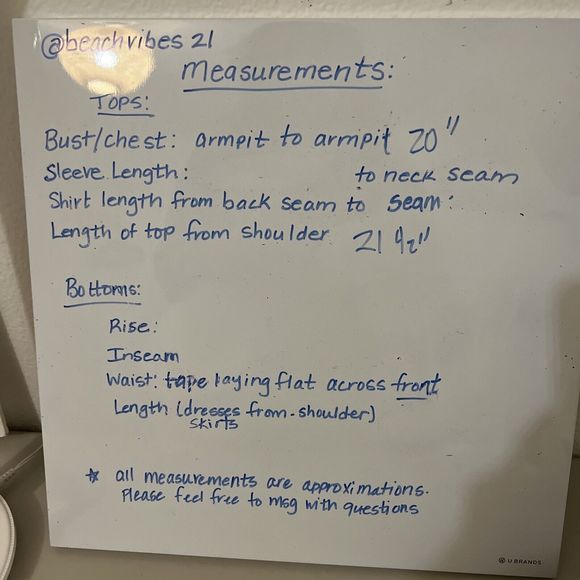 @beachvibes 21
Measurements:
Tops:
Bust/chest: armpit to armpit 20"
Sleeve Length: to neck seam
Shirt length from back seam to seam:
Length of top from shoulder 21 1/2"
Bottoms:
Rise:
Inseam
Waist: tape laying flat across front
Length (dresses from-shoulder)
skirts
* all measurements are approximations.
Please feel free to msg with questions
U BRANDS